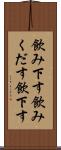 飲み下す飲み
くだす飲下す